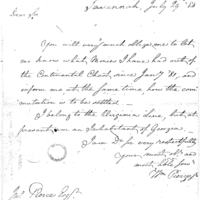 Savannah, July 29th 84
Dear Sir
You will very much oblige me to let
me know what Monies I have had out of
the Continental Chest, since Jany '81, and
inform me at the same time, how the com
mutation is to be settled.
I belong to the Virginia Line, but at
present am an Inhabitant of Georgia.
I am Dr Sir very respectfully
your most obt and
most hble Servt
Wm Pierce
Jno Pierce Esqr